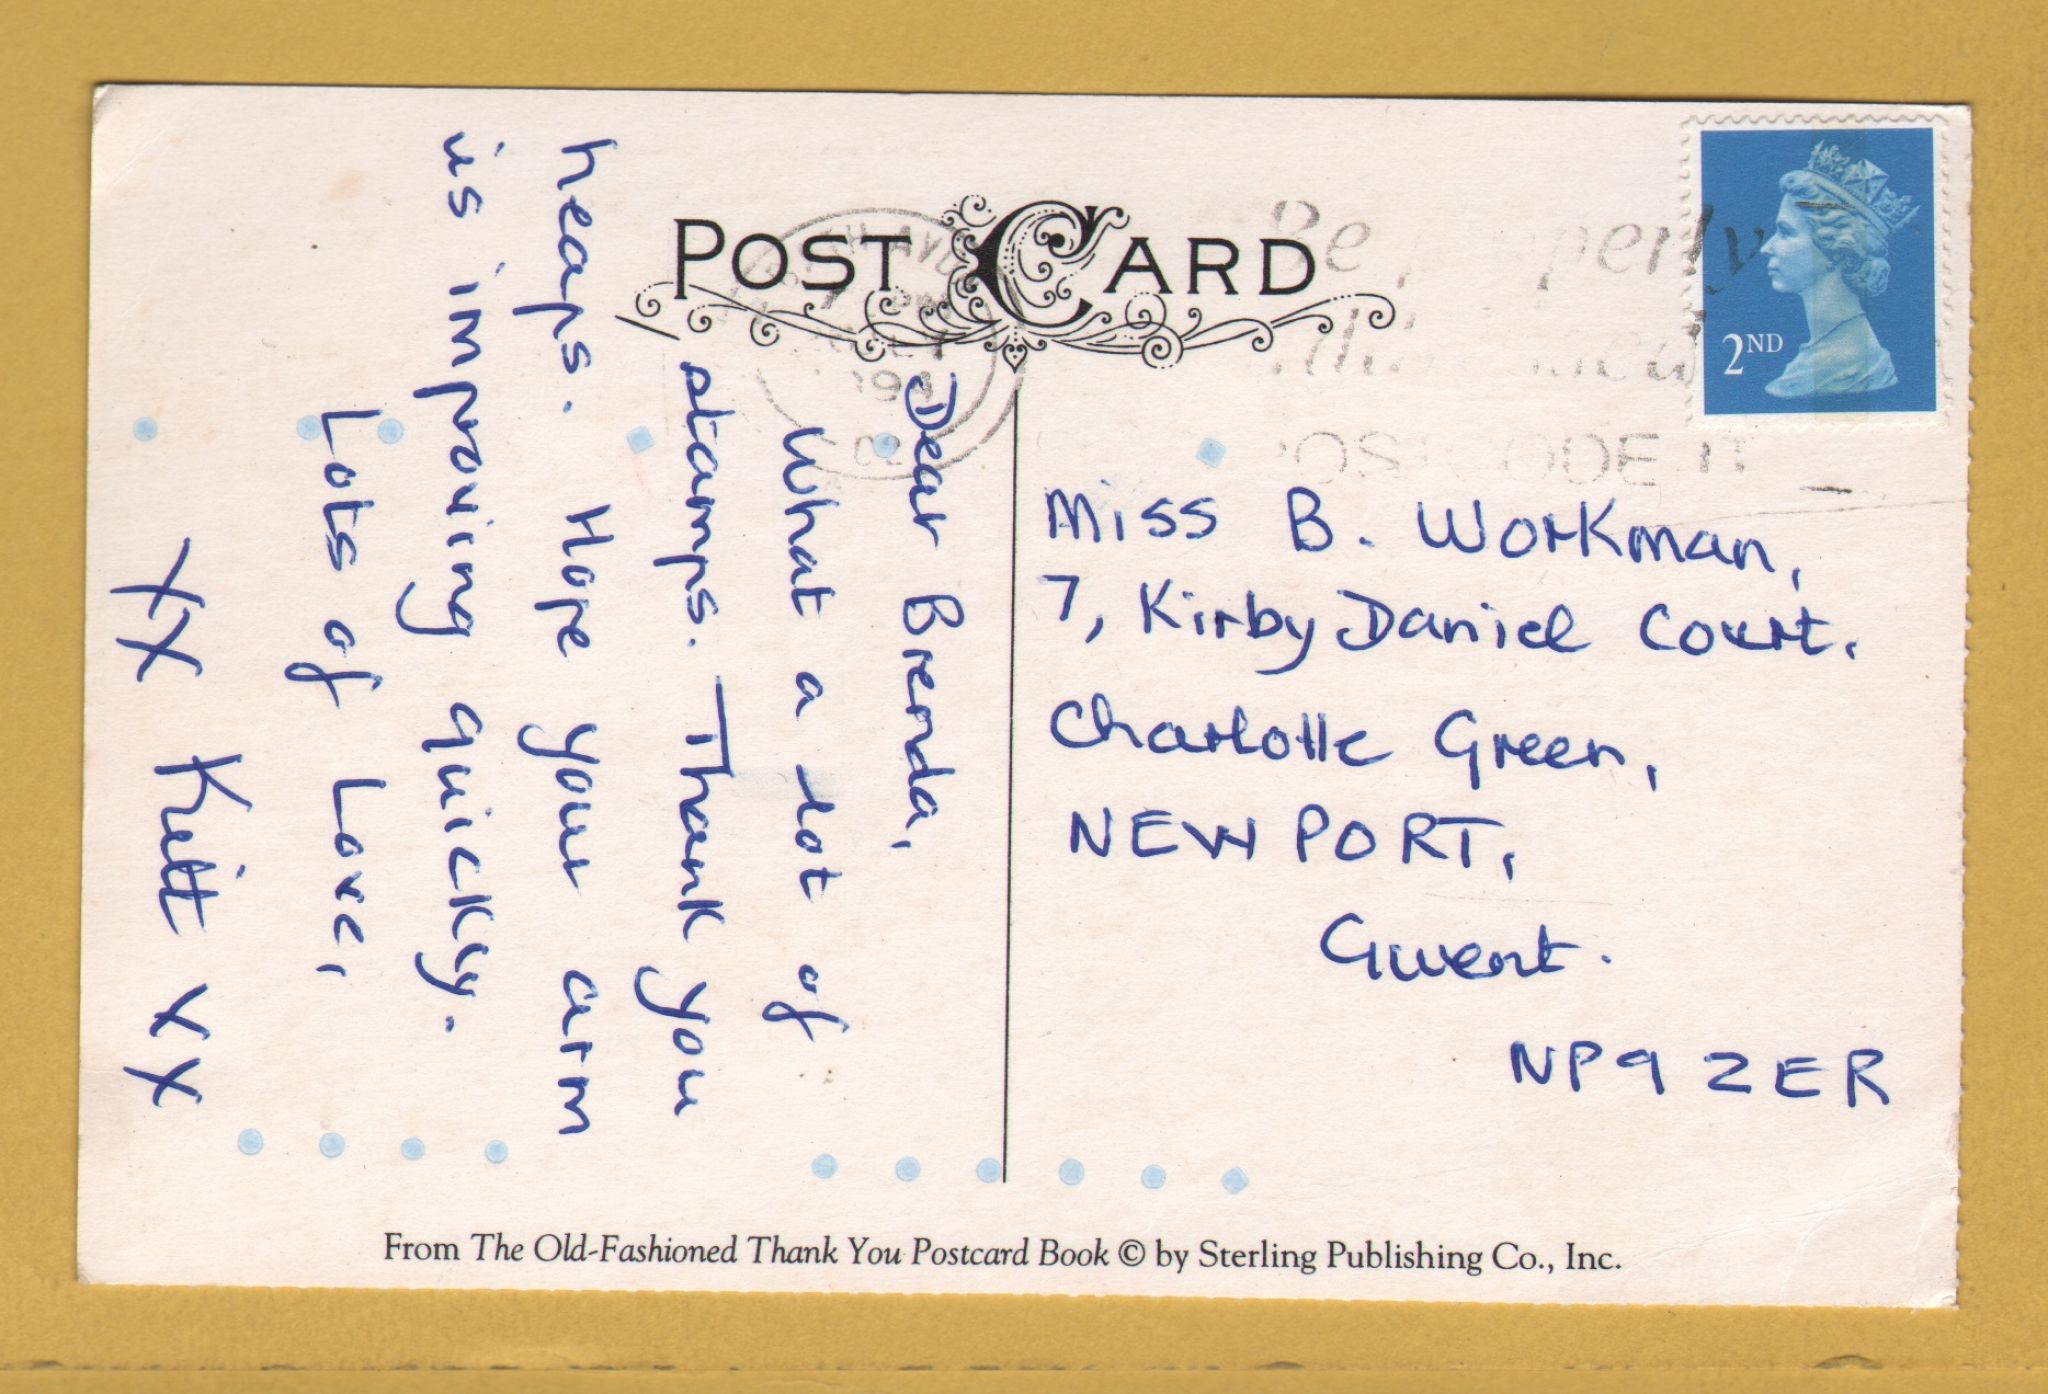 POST CARD
2ND
Be
POSTCODE IT
Dear Brenda,
What a lot of
stamps. Thank you
heaps. Hope your arm
is improving quickly.
Lots of Love,
XX Keitt XX
Miss B. Workman,
7, Kirby Daniel Court.
Charlotte Green,
NEWPORT,
Gwent.
NP9 2ER
From The Old-Fashioned Thank You Postcard Book © by Sterling Publishing Co., Inc.